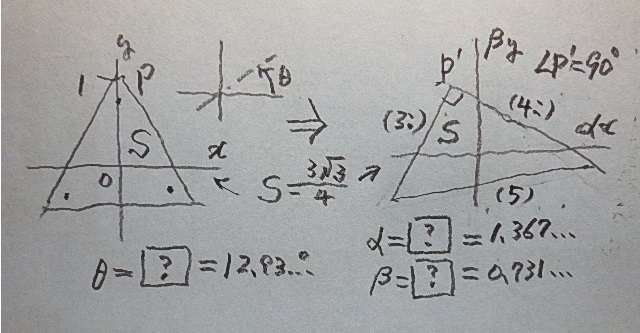 y
1 P
S
x
O
θ
⇒
S = 3√3/4
P'
βy
∠P'=90°
(3:)
(4:)
S
αx
(5)
θ = ? = 12.93...°
α = ? = 1.367...
β = ? = 0.731...